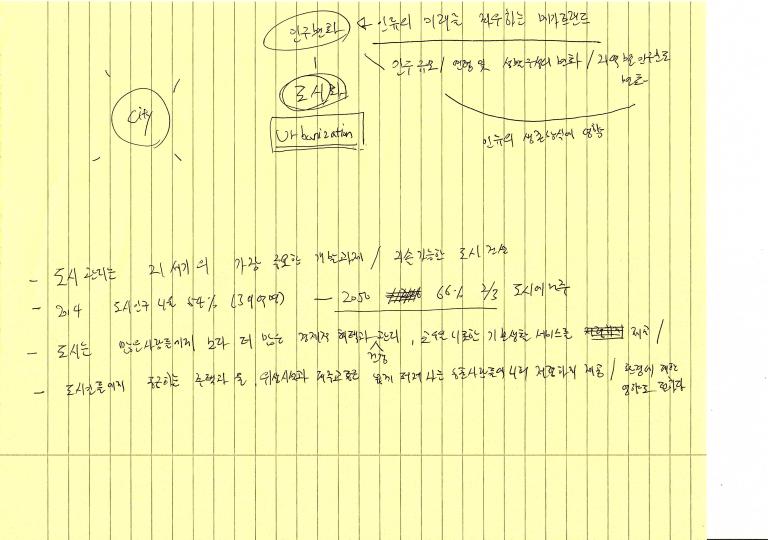 인구변화 ← 인류의 미래를 좌우하는 메가트렌드
인구규모 / 연령 및 성별구성의 변화 / 지역별 인구분포 변화
City
도시화
Urbanization
인류의 생존방식에 영향
- 도시 관리는 21세기의 가장 중요한 개발과제 / 지속가능한 도시 건설
- 2014 도시인구 비율 54% (39억명) — 2050 66% 2/3 도시에 거주
- 도시는 많은 사람들에게 보다 더 많은 경제적 혜택과 관리, 교육을 비롯한 기본생활 서비스를 제공 /
건강
- 도시인들에게 공급하는 주택과 물, 위생시설과 대중교통은 사람들에게 제공 / 환경에 대한
영향도 덜하다